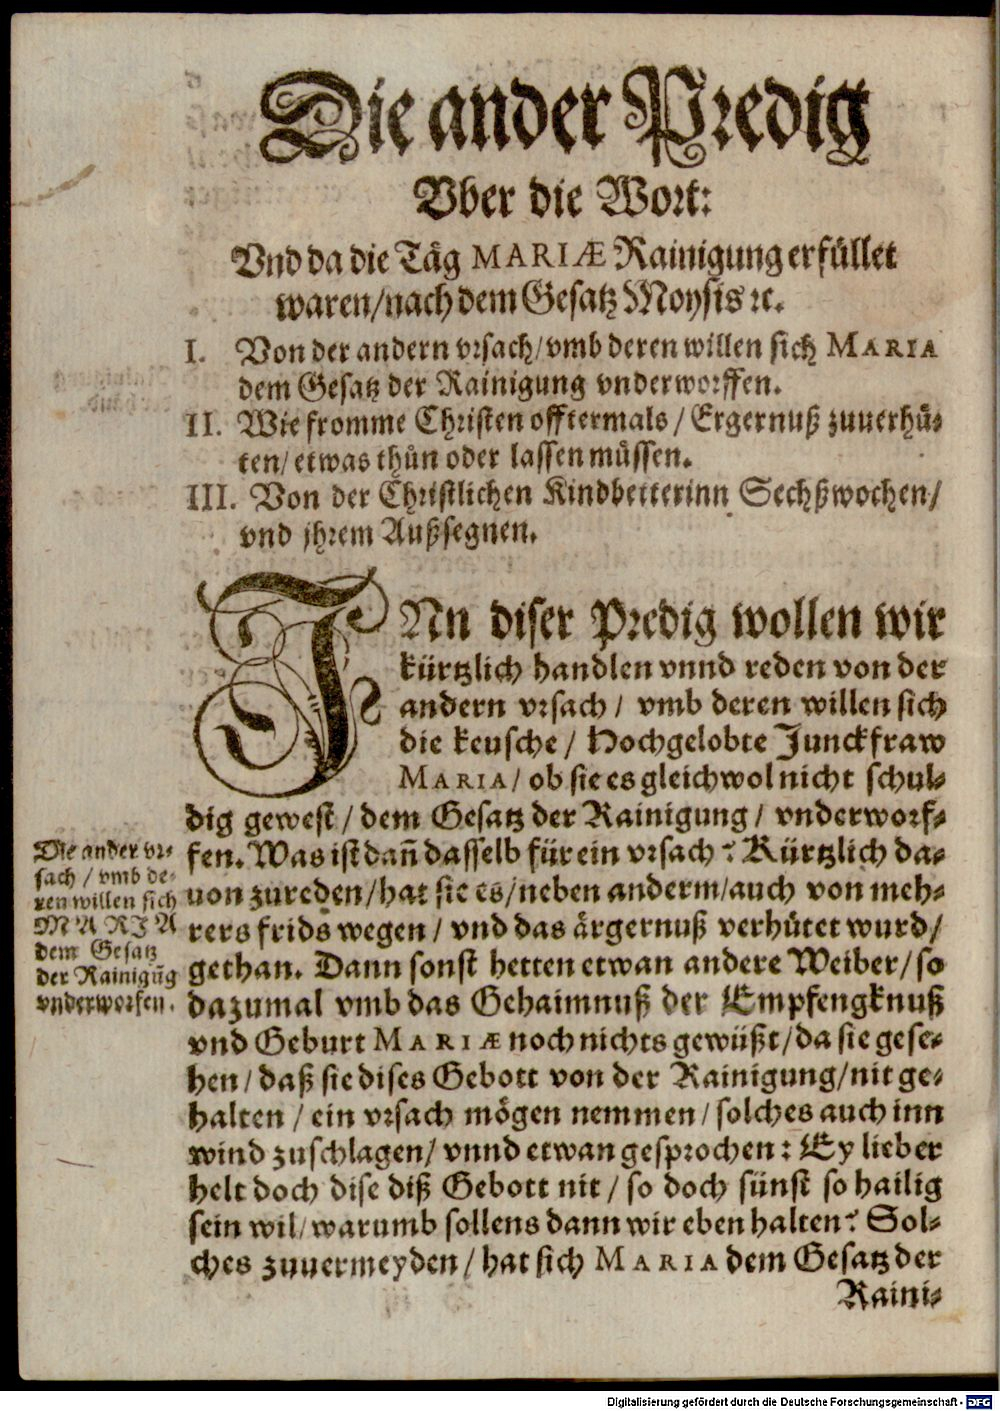 Die ander Predig
Vber die Wort:
Vnd da die Täg MARIÆ Rainigung erfüllet
waren/nach dem Gesatz Moysis ꝛc.
I. Von der andern vrsach/vmb deren willen sich MARIA
dem Gesatz der Rainigung vnderworffen.
II. Wie fromme Christen offtermals / Ergernuß zuuerhü-
ten/ etwas thůn oder lassen müssen.
III. Von der Christlichen Kindbetterinn Sechßwochen/
vnd jhrem Außsegnen.
INn diser Predig wollen wir
kürtzlich handlen vnnd reden von der
andern vrsach / vmb deren willen sich
die keusche / Hochgelobte Junckfraw
MARIA / ob sie es gleichwol nicht schul-
dig gewest / dem Gesatz der Rainigung / vnderworf-
fen. Was ist dañ dasselb für ein vrsach? Kürtzlich da-
uon zureden/hat sie es/neben anderm/auch von meh-
rers frids wegen / vnd das ärgernuß verhütet wurd/
gethan. Dann sonst hetten etwan andere Weiber/so
dazumal vmb das Gehaimnuß der Empfengknuß
vnd Geburt MARIÆ noch nichts gewüßt/da sie gese-
hen/daß sie dises Gebott von der Rainigung/nit ge-
halten / ein vrsach mögen nemmen/solches auch inn
wind zuschlagen/ vnnd etwan gesprochen: Ey lieber
helt doch dise diß Gebott nit / so doch sünst so hailig
sein wil/warumb sollens dann wir eben halten? Sol-
ches zuuermeyden / hat sich MARIA dem Gesatz der
Raini-
Die ander vr-
sach / vmb de-
ren willen sich
MARIA
dem Gesatz
der Rainigũg
vnderworfen.
Digitalisierung gefördert durch die Deutsche Forschungsgemeinschaft - DFG